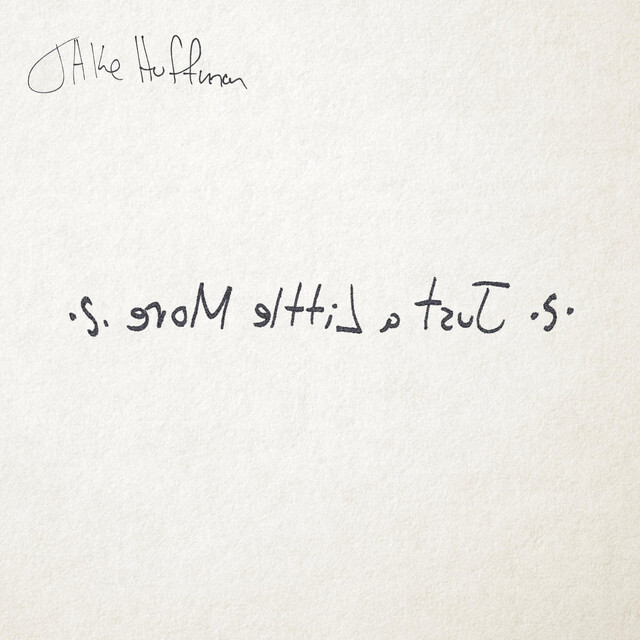 JAke Huffman
.s. Just a Little More .s.